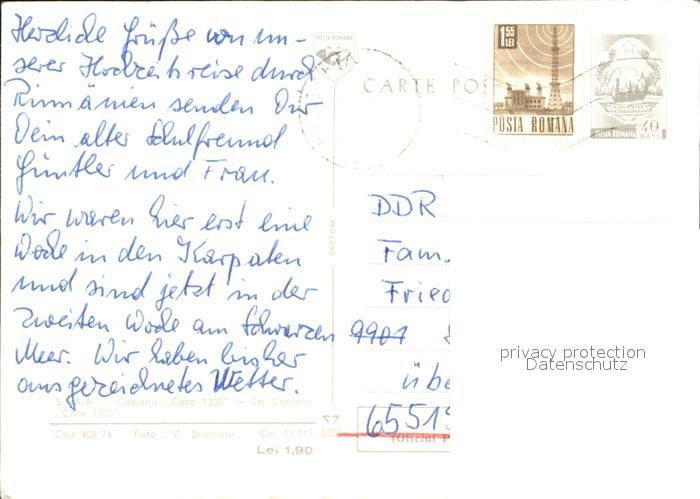 Herzliche Grüße von un-
serer Hochzeitsreise durch
Rumänien senden Dir
Dein alter Schulfreund
Günther und Frau.
Wir waren hier erst eine
Woche in den Karpaten
und sind jetzt in der
zweiten Woche am Schwarzen
Meer. Wir haben bisher
ausgezeichnetes Wetter.
SINAIA – Cabana „Cota 1300" – La Cabane
„Cote 1300"
Cod 408/74 Foto: V. Stamate Cd. 11.015
Lei 1,90
POSTA ROMANA
CARTE POS
1,55
LEI
POSTA ROMANA
POSTA ROMANA 40
BANI
DDR
Fam.
Fried
9901
übe
6551
(Oficiul P
privacy protection
Datenschutz